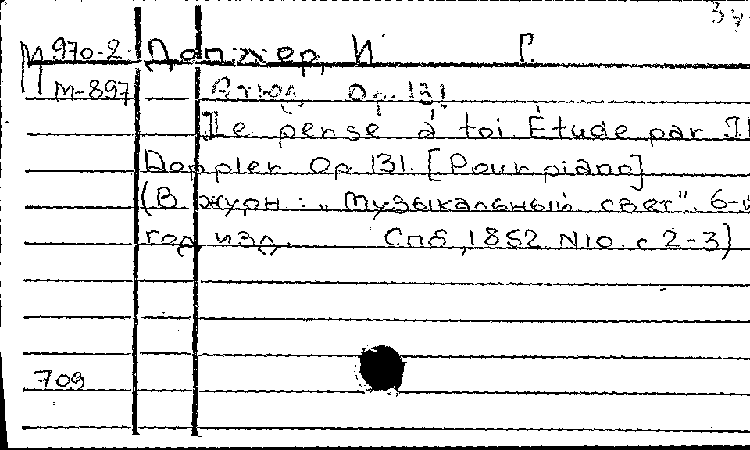 34
М 970-2 Допплер, И Г.
М-897 Этюд Op. 131
Je pense à toi. Étude par
Doppler Op 131. [Pour piano]
(В журн: "Музыкальный свет". 6-й
год изд. Спб, 1852 N10. с 2-3)
709